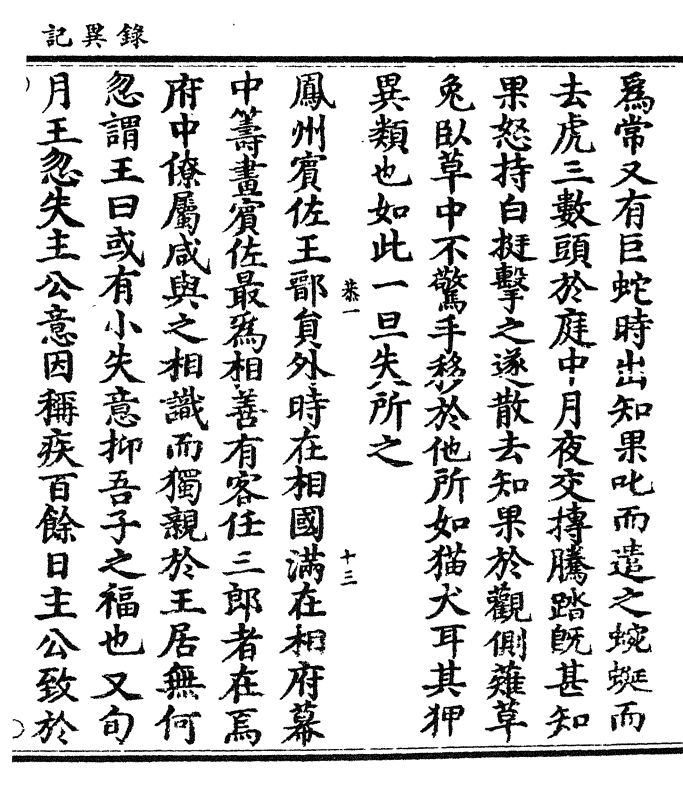 錄異記
爲常又有巨蛇時出知果叱而遣之蜿蜒而
去虎三數頭於庭中月夜交摶騰踏旣甚知
果怒持白挺擊之遂散去知果於觀側薙草
兔臥草中不驚手移於他所如猫犬耳其狎
異類也如此一旦失所之
卷一
十三
鳳州賓佐王鄑員外時在相國滿在相府幕
中籌畫賓佐最爲相善有客任三郎者在焉
府中僚屬咸與之相識而獨親於王居無何
忽謂王曰或有小失意抑吾子之福也又旬
月王忽失主公意因稱疾百餘日主公致於